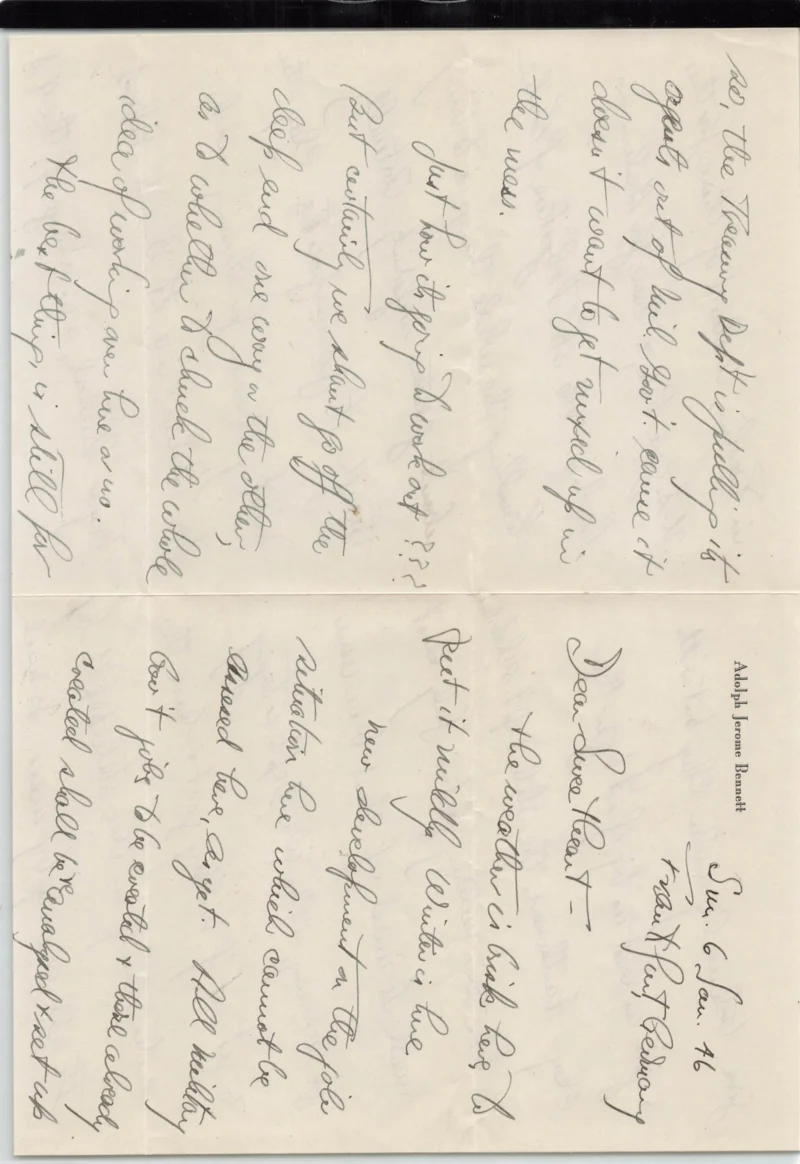 Adolph Jerome Bennett
Sun. 6 Jan. 46
Frankfurt, Germany
Dear Sweetheart –
The weather is brisk here, to
put it mildly. Winter is here
New development on the job
situation here which cannot be
assessed here, as yet. All military
Gov't jobs to be created & those already
created shall be &set up
so, the Treasury Dept is pulling its
agents out of mil. Gov't. cause it
doesn't want to get mixed up in
the mess.
Just how its going to work out ???
But certainly we shant go off the
deep end one way or the other,
as to whether to chuck the whole
idea of working over here or no.
The best thing, is still for